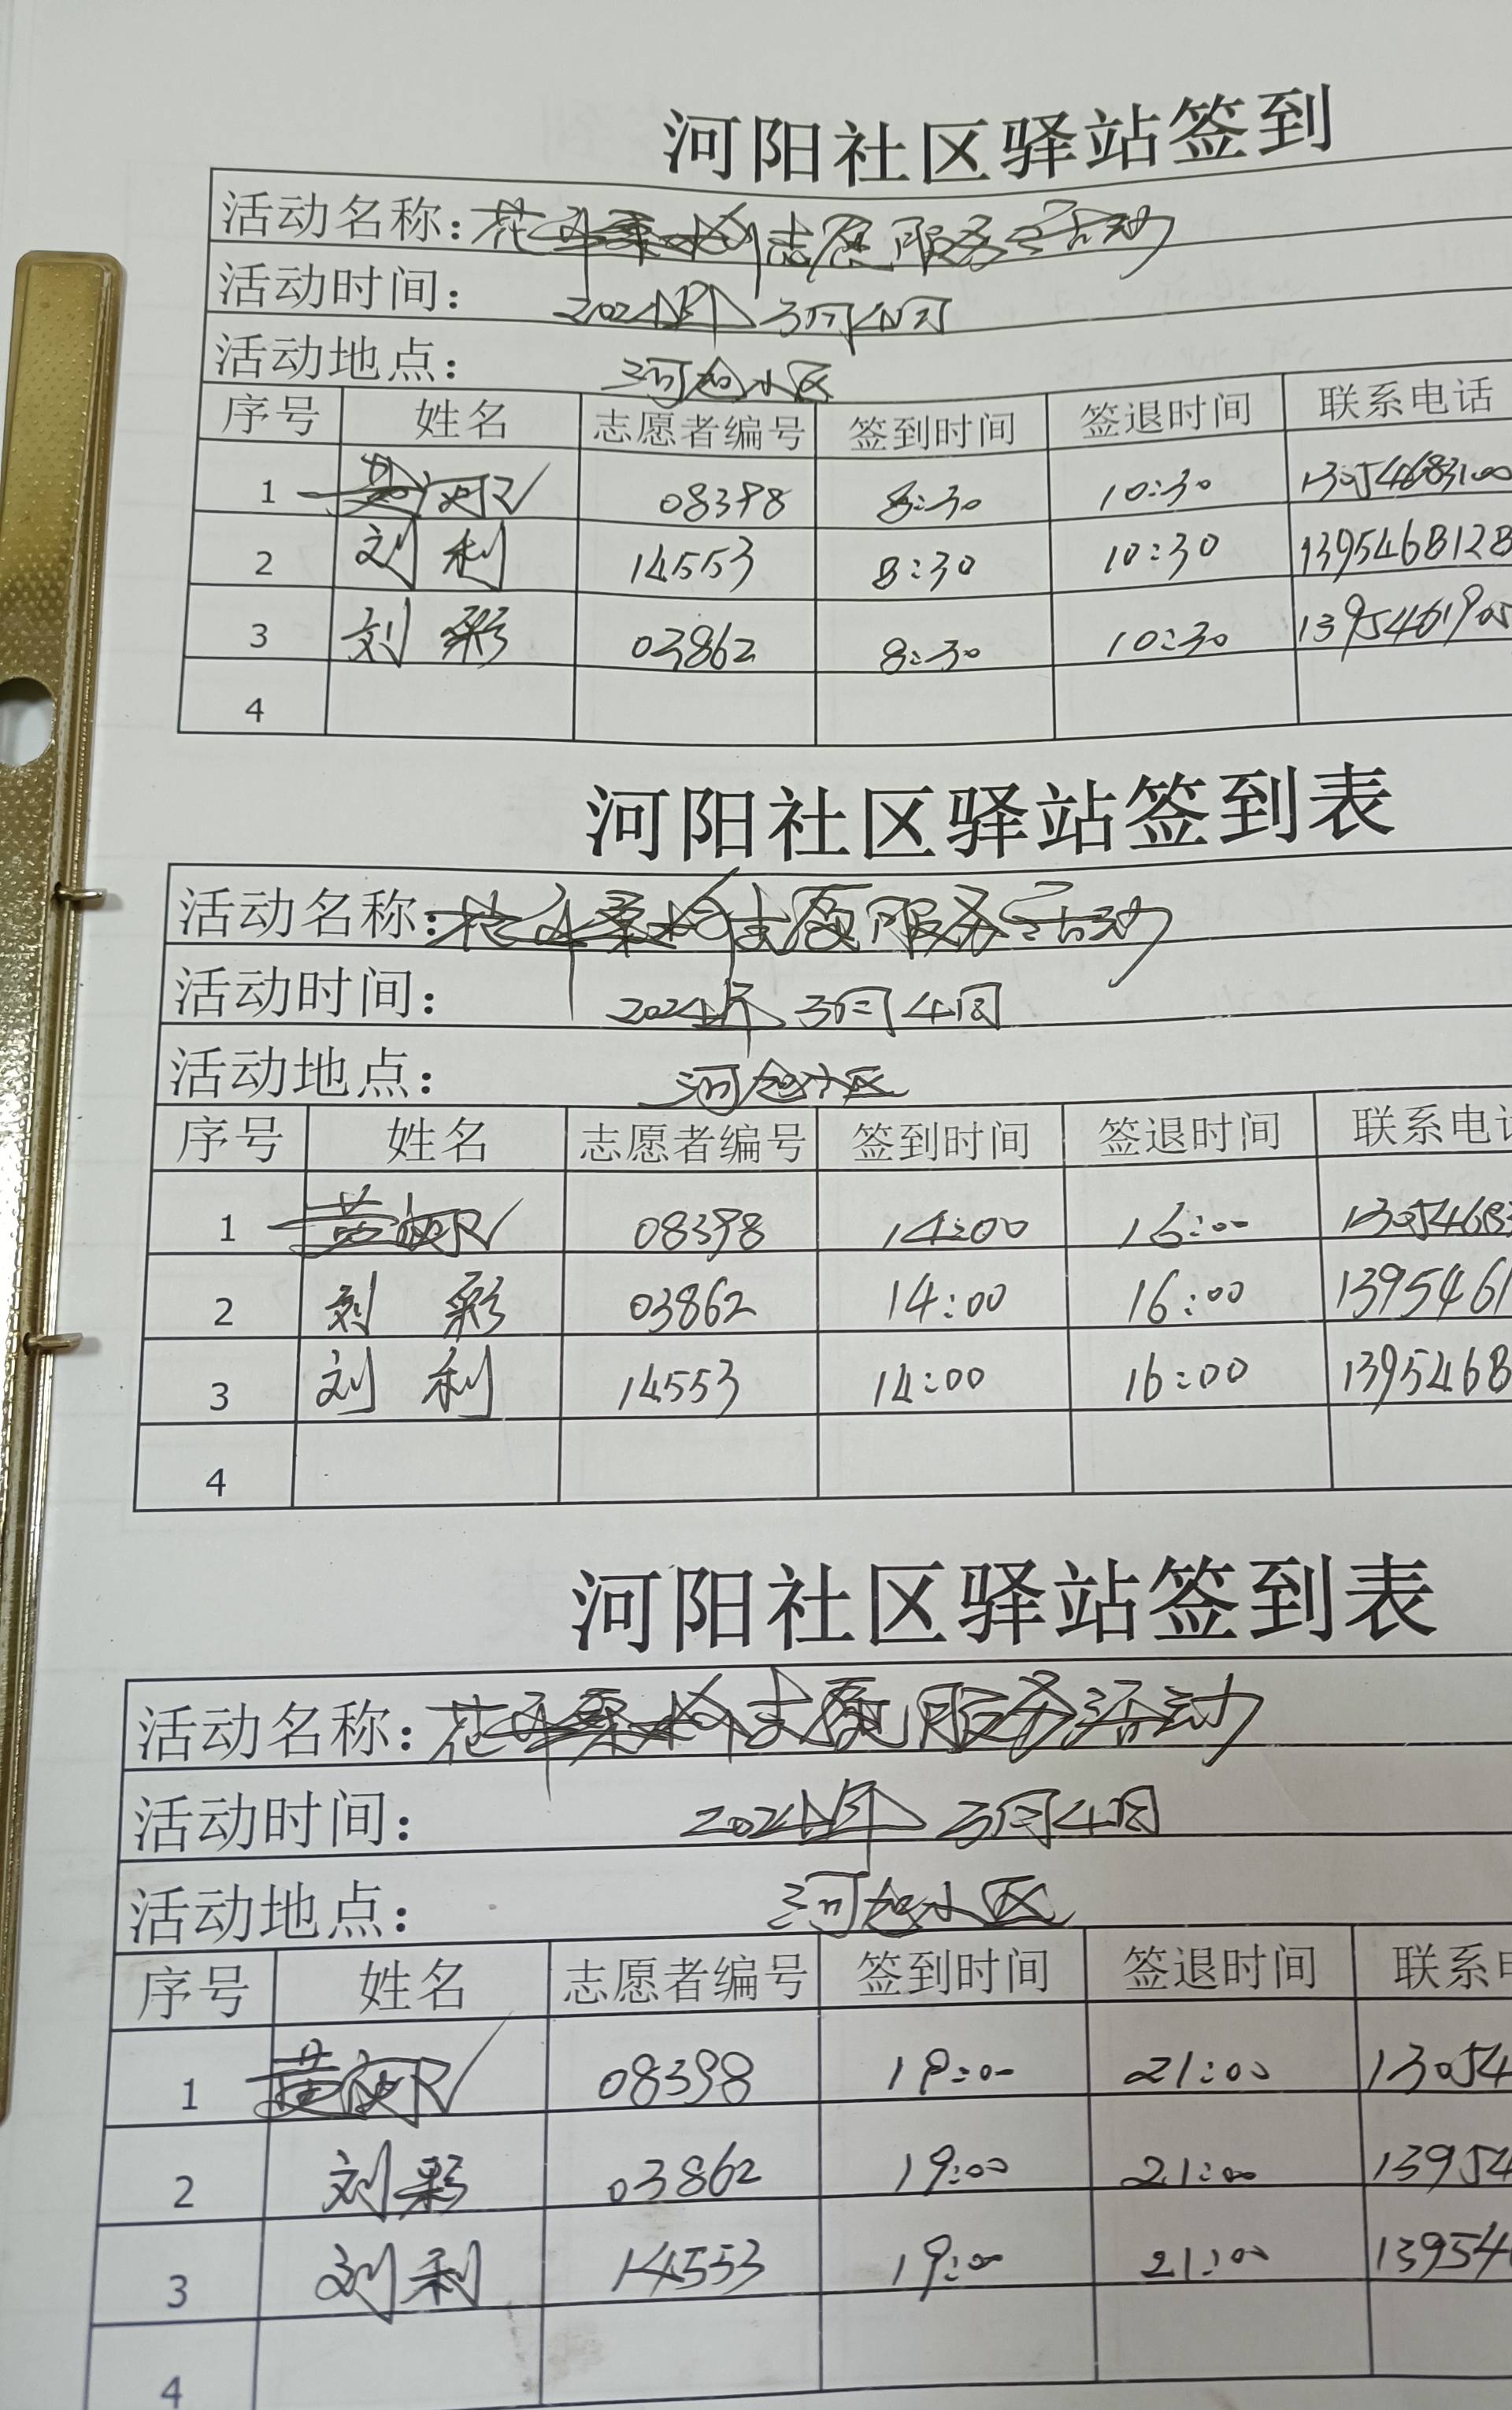 河阳社区驿站签到
活动名称：志愿服务活动
活动时间： 2024年3月4日
活动地点： 河阳小区
序号 姓名 志愿者编号 签到时间 签退时间 联系电话
1 08398 8:30 10:30 13054683100
2 刘利 14553 8:30 10:30 1395468128
3 刘彩 03862 8:30 10:30 1395461905
4
河阳社区驿站签到表
活动名称：志愿服务活动
活动时间： 2024年3月4日
活动地点： 河阳小区
序号 姓名 志愿者编号 签到时间 签退时间 联系电话
1 08398 14:00 16:00 13054683
2 刘彩 03862 14:00 16:00 1395461
3 刘利 14553 14:00 16:00 1395468
4
河阳社区驿站签到表
活动名称：志愿服务活动
活动时间： 2024年3月4日
活动地点： 河阳小区
序号 姓名 志愿者编号 签到时间 签退时间 联系电
1 08398 19:00 21:00 13054
2 刘彩 03862 19:00 21:00 13954
3 刘利 14553 19:00 21:00 13954
4